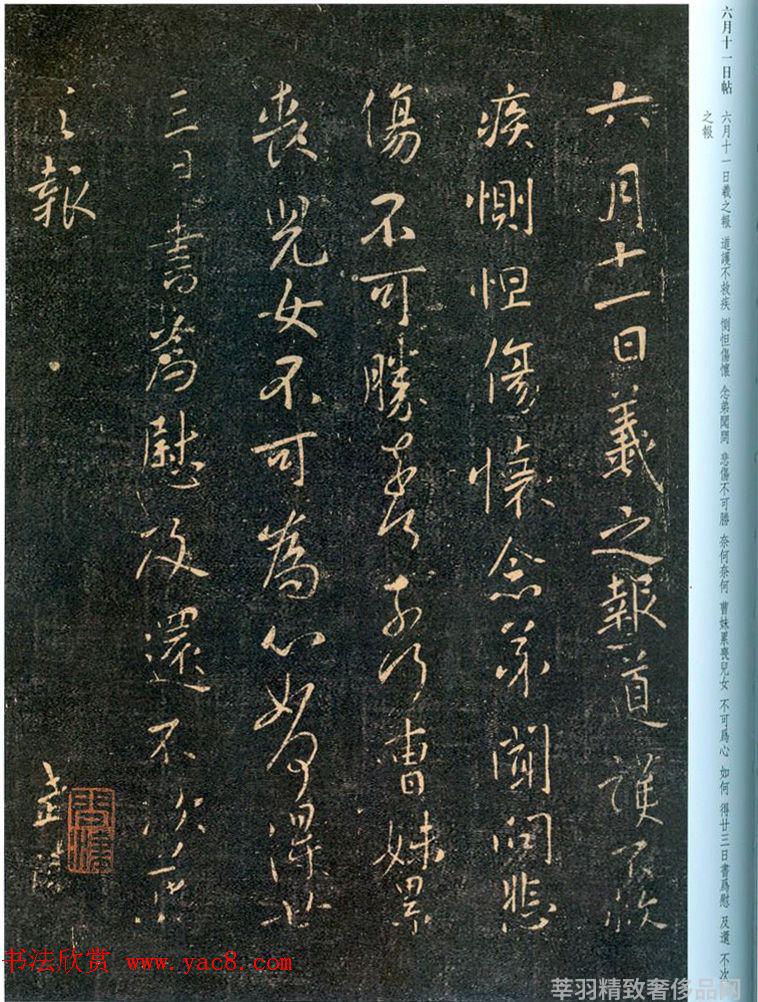 六月十一日帖 六月十一日羲之報 道護不救疾 惻怛傷懷 念弟聞問 悲傷不可勝 奈何奈何 曹妹累喪兒女 不可爲心 如何 得廿三日書爲慰 及還 不次
之報
六月十一日羲之報道護不救
疾惻怛傷懷念弟聞問悲
傷不可勝奈何奈何曹妹累
喪兒女不可為心如何得廿
三日書為慰及還不次羲
之報
书法欣赏 www.yac8.com
莘羽精致奢侈品网